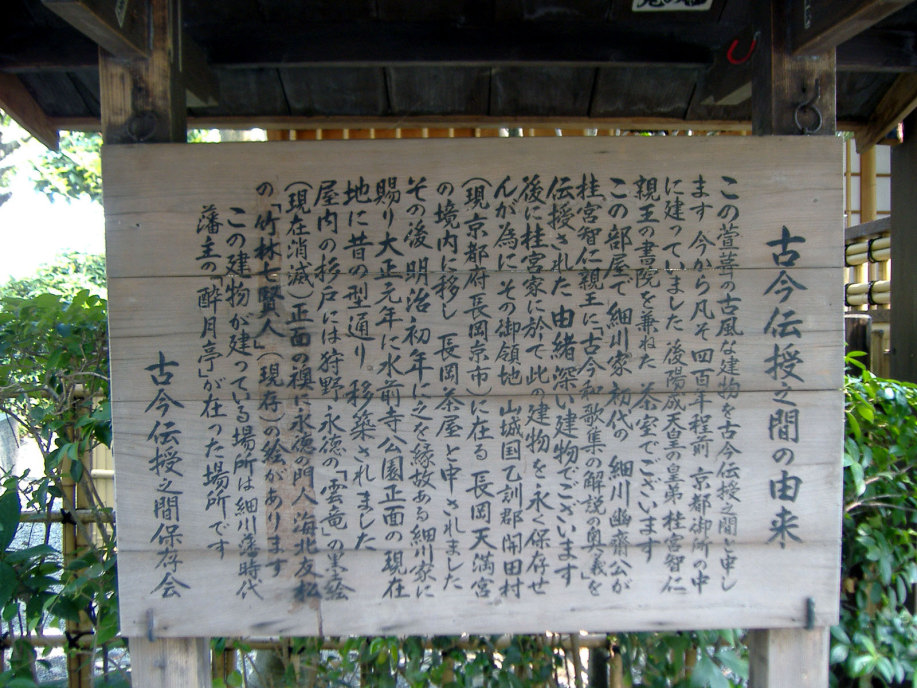 古今伝授之間の由来
この萱葺の古風な建物を古今伝授之間と申し
ます今から凡そ四百年程前京都御所の中
に建っていました後陽成天皇の皇弟桂宮智仁
親王の書院を兼ねた茶室でございます
この部屋で細川家初代の細川幽斎公が
桂宮智仁親王に「古今和歌集の解説の奥義」を
伝授された由緒深い建物でございます
後に桂宮家に於て此の建物を永く保存せ
んが為にその御領地山城国乙訓郡開田村
(現京都府長岡京市)に在る長岡天満宮
の境内に移し長岡茶屋と申されました
その後明治初年に之を縁故ある細川家に
賜り大正元年に水前寺公園正面の現在
地に昔の型通り移築されました
屋内の杉戸には狩野永徳の「雲竜」の墨絵
(現在消滅)正面の襖に永徳の門人海北友松
の「竹林七賢人」(現存)の絵があります
この建物が建っている場所は細川藩時代
藩主の「酔月亭」が在った場所です
古今伝授之間保存会